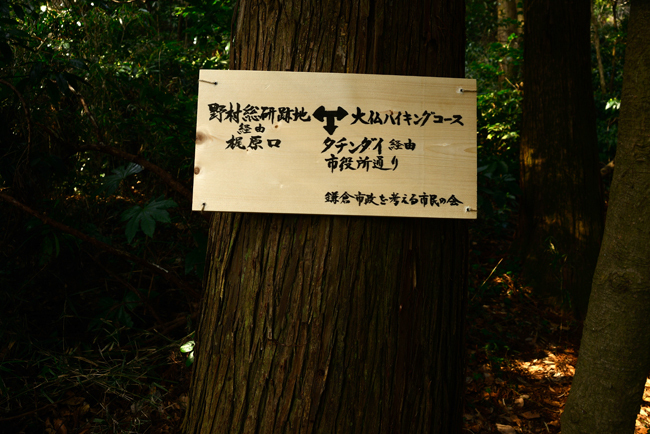 野村総研跡地 大仏ハイキングコース
経由 タチンダイ 経由
梶原口 市役所通り
鎌倉市政を考える市民の会